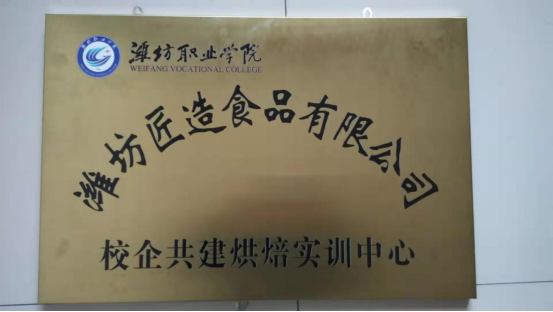 潍坊职业学院
WEIFANG VOCATIONAL COLLEGE
潍坊匠造食品有限公司
校企共建烘焙实训中心